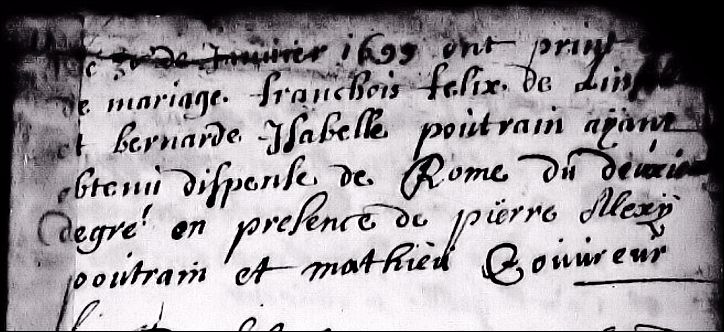 de Janvier 1699 ont print
de mariage franchois felix de
et bernarde Isabelle poutrain aÿant
obtenu dispense de Rome du deuxie
degré en presence de pïerre Alexÿ
poutrain et mathieu Couureur